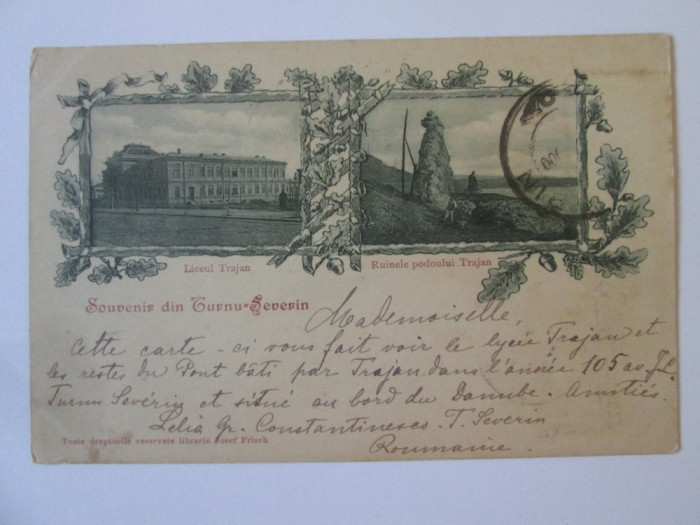 Liceul Trajan
Ruinele podoului Trajan
Souvenir din Turnu-Severin
Mademoiselle,
Cette carte - ci vous fait voir le lycée Trajan et
les restes du Pont bâti par Trajan dans l'année 105 av J.C.
Turnu Sevérin et situé au bord du Danube. Amitiés.
Lelia Gr. Constantinesco - T. Severin
Roumanie.
Toate drepturile rezervate librarie Josef Frisch